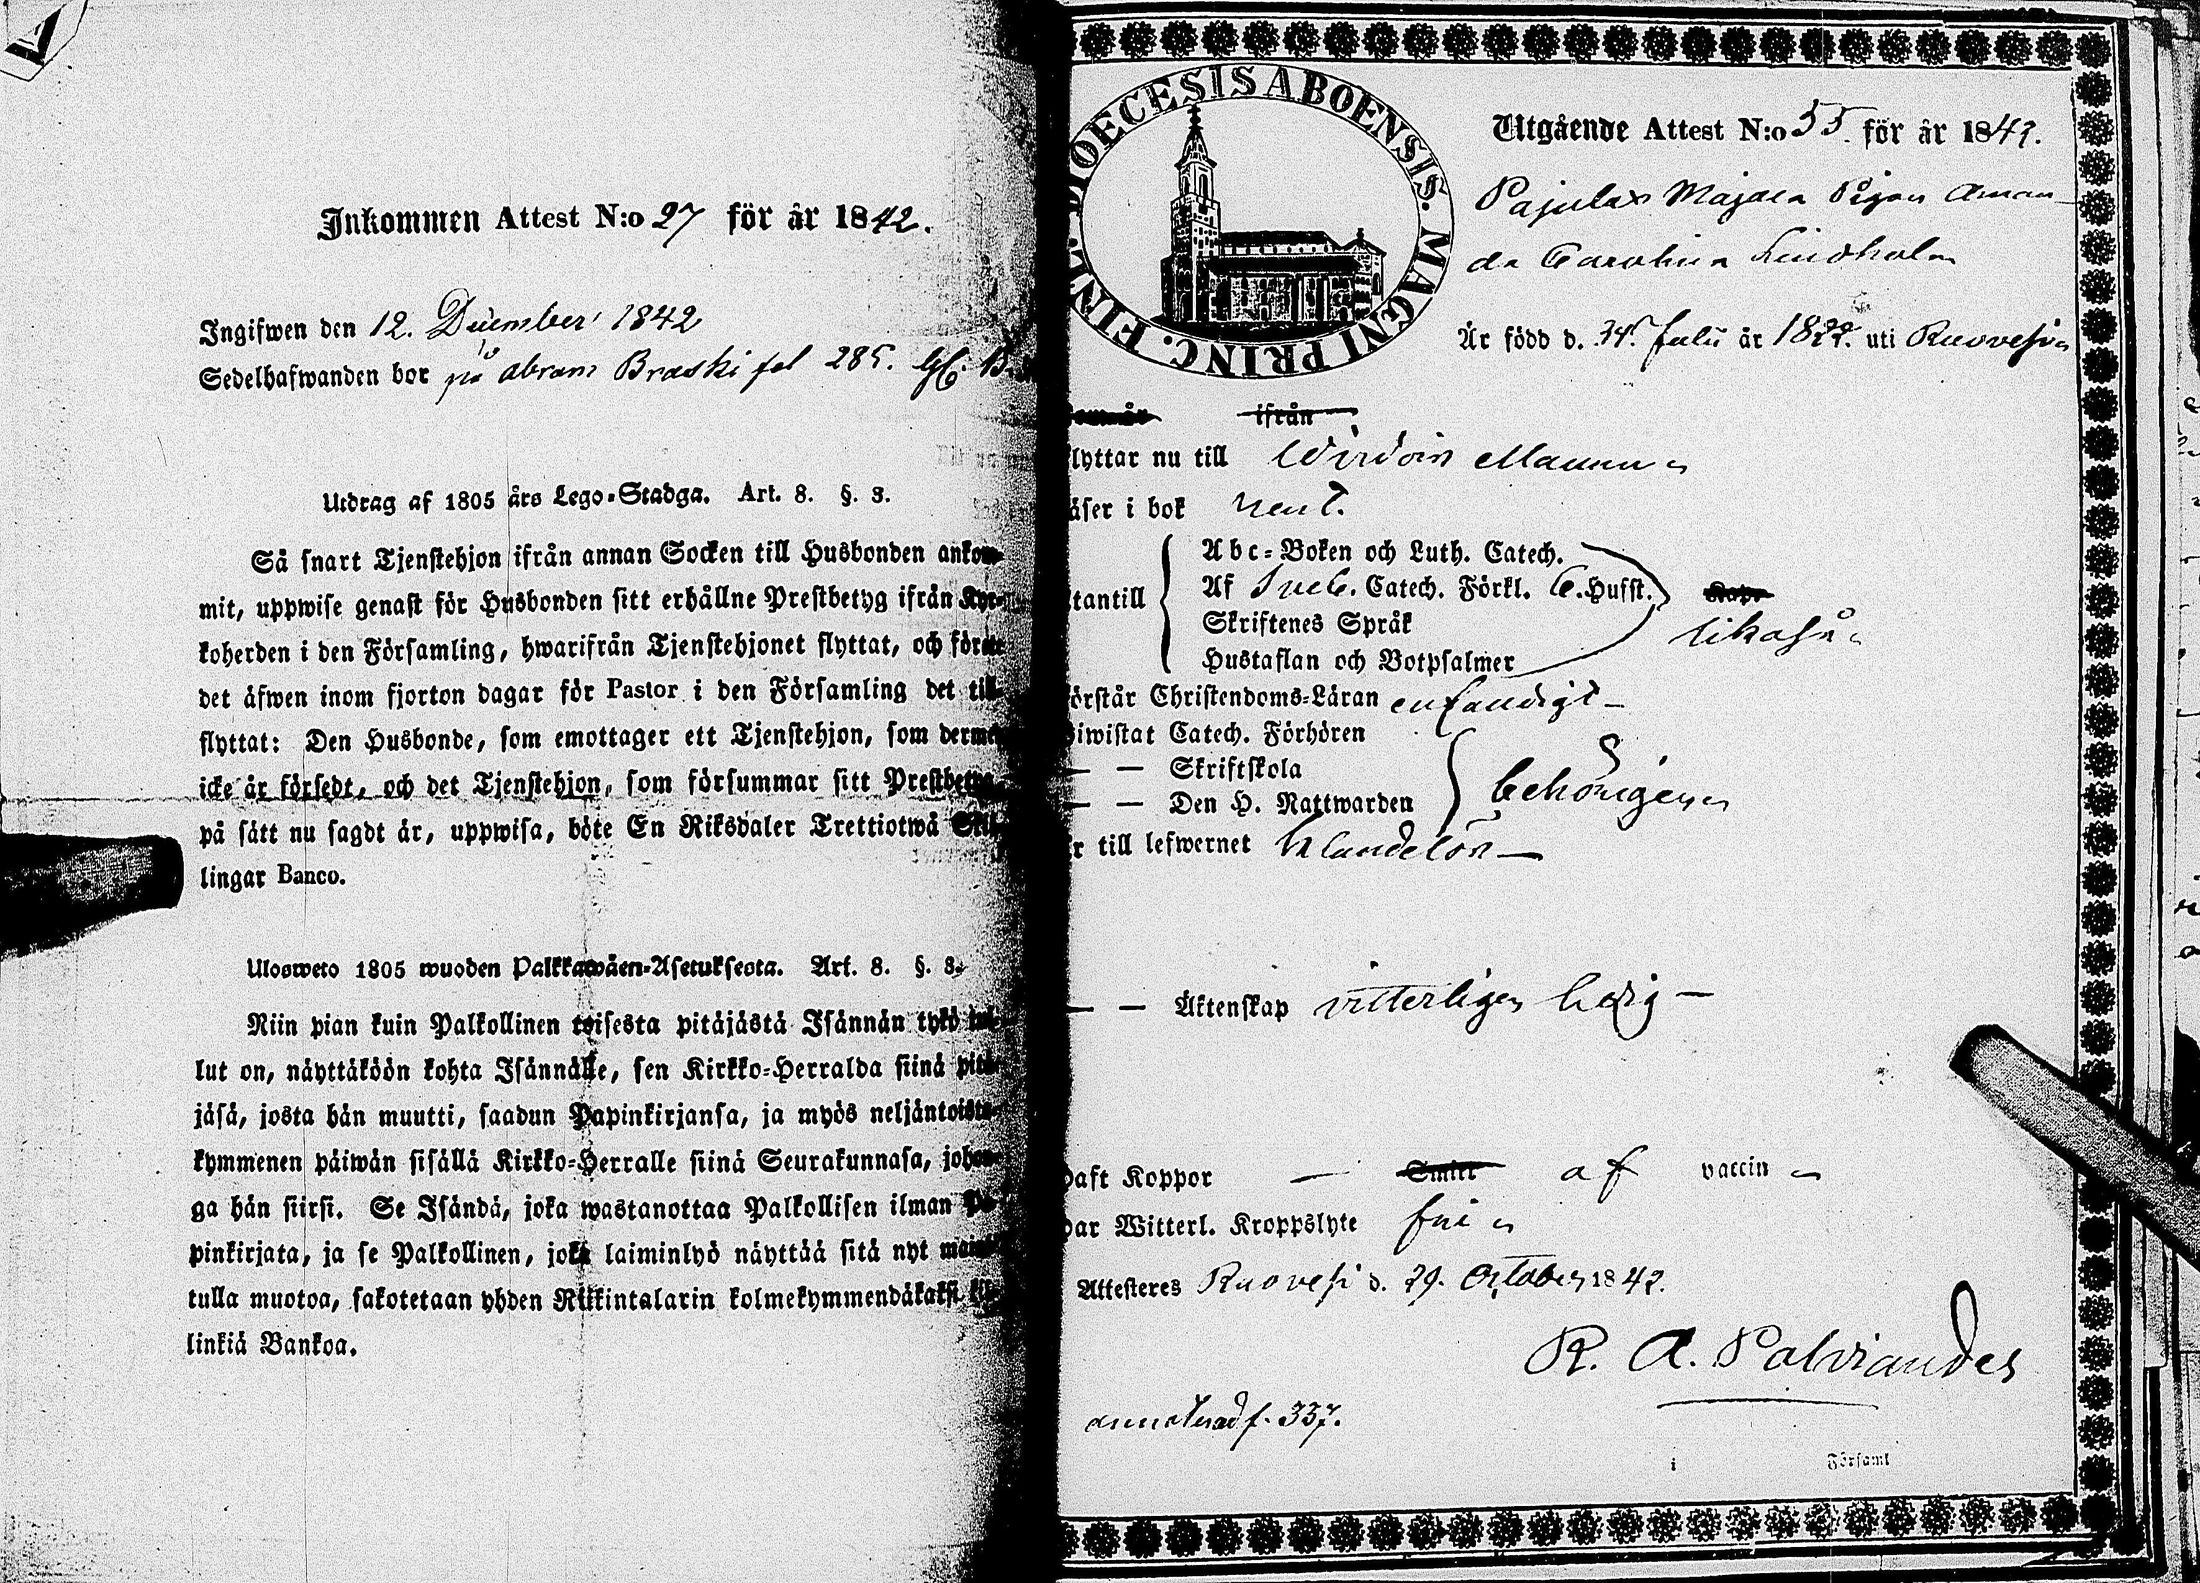 Inkommen Attest N:o 27 för år 1842.
Ingifwen den 12. December 1842
Sedelhafwanden bor på Abram Braski fol 285.
Utdrag af 1805 års Lego-Stadga. Art. 8. §. 3.
Så snart Tjenstehjon ifrån annan Socken till Husbonden ankom-
mit, uppwise genast för Husbonden sitt erhållne Prestbetyg ifrån Kyr-
koherden i den Församling, hwarifrån Tjenstehjonet flyttat, och förete
det äfwen inom fjorton dagar för Pastor i den Församling det till-
flyttat: Den Husbonde, som emottager ett Tjenstehjon, som dermed
icke är försedt, och det Tjenstehjon, som försummar sitt Prestbetyg,
på sätt nu sagdt är, uppwisa, böte En Riksdaler Trettiotwå Skil-
lingar Banco.
Ulosweto 1805 wuoden Palkkawäen-Asetuksesta. Art. 8. §. 3.
Niin pian kuin Palkollinen toisesta pitäjästä Isännän tykö tul-
lut on, näyttäköön kohta Isännälle, sen Kirkko-Herralda siinä pitä-
jäsä, josta hän muutti, saadun Papinkirjansa, ja myös neljäntoista-
kymmenen päiwän sisällä Kirkko-Herralle siinä Seurakunnasa, johon-
ga hän siirsi. Se Isändä, joka wastanottaa Palkollisen ilman Pa-
pinkirjata, ja se Palkollinen, joka laiminlyö näyttää sitä nyt maini-
tulla muotoa, sakotetaan yhden Riikintalarin kolmekymmendäkaksi kil-
linkiä Bankoa.
DIOECESIS ABOENSIS. MAGNI PRINC. FINL.
Utgående Attest N:o 55. för år 1842.
Pajulax Majaen Pigan Aman-
da Carolina Lindholm
Är född d. Julii år 1822. uti Ruovesi
ifrån
flyttar nu till Wirdois
läser i bok rent.
utantill
Abc-Boken och Luth. Catech.
Af Sveb. Catech. Förkl. C. Husst.
Skriftenes Språk
Hustaflan och Botpsalmer
likaså
förstår Christendoms-Läran enfaldigt
Biwistat Catech. Förhören
— — Skriftskola
— — Den H. Nattwarden
behörigen
är till lefwernet klanderlös
— — Äktenskap vitterligen ledig
haft Koppor — af vaccin
har Witterl. Kroppslyte fri
Attesteres Ruovesi d. 29. October 1842.
R. A. Palviandes
annoterad f. 337.
i Församl